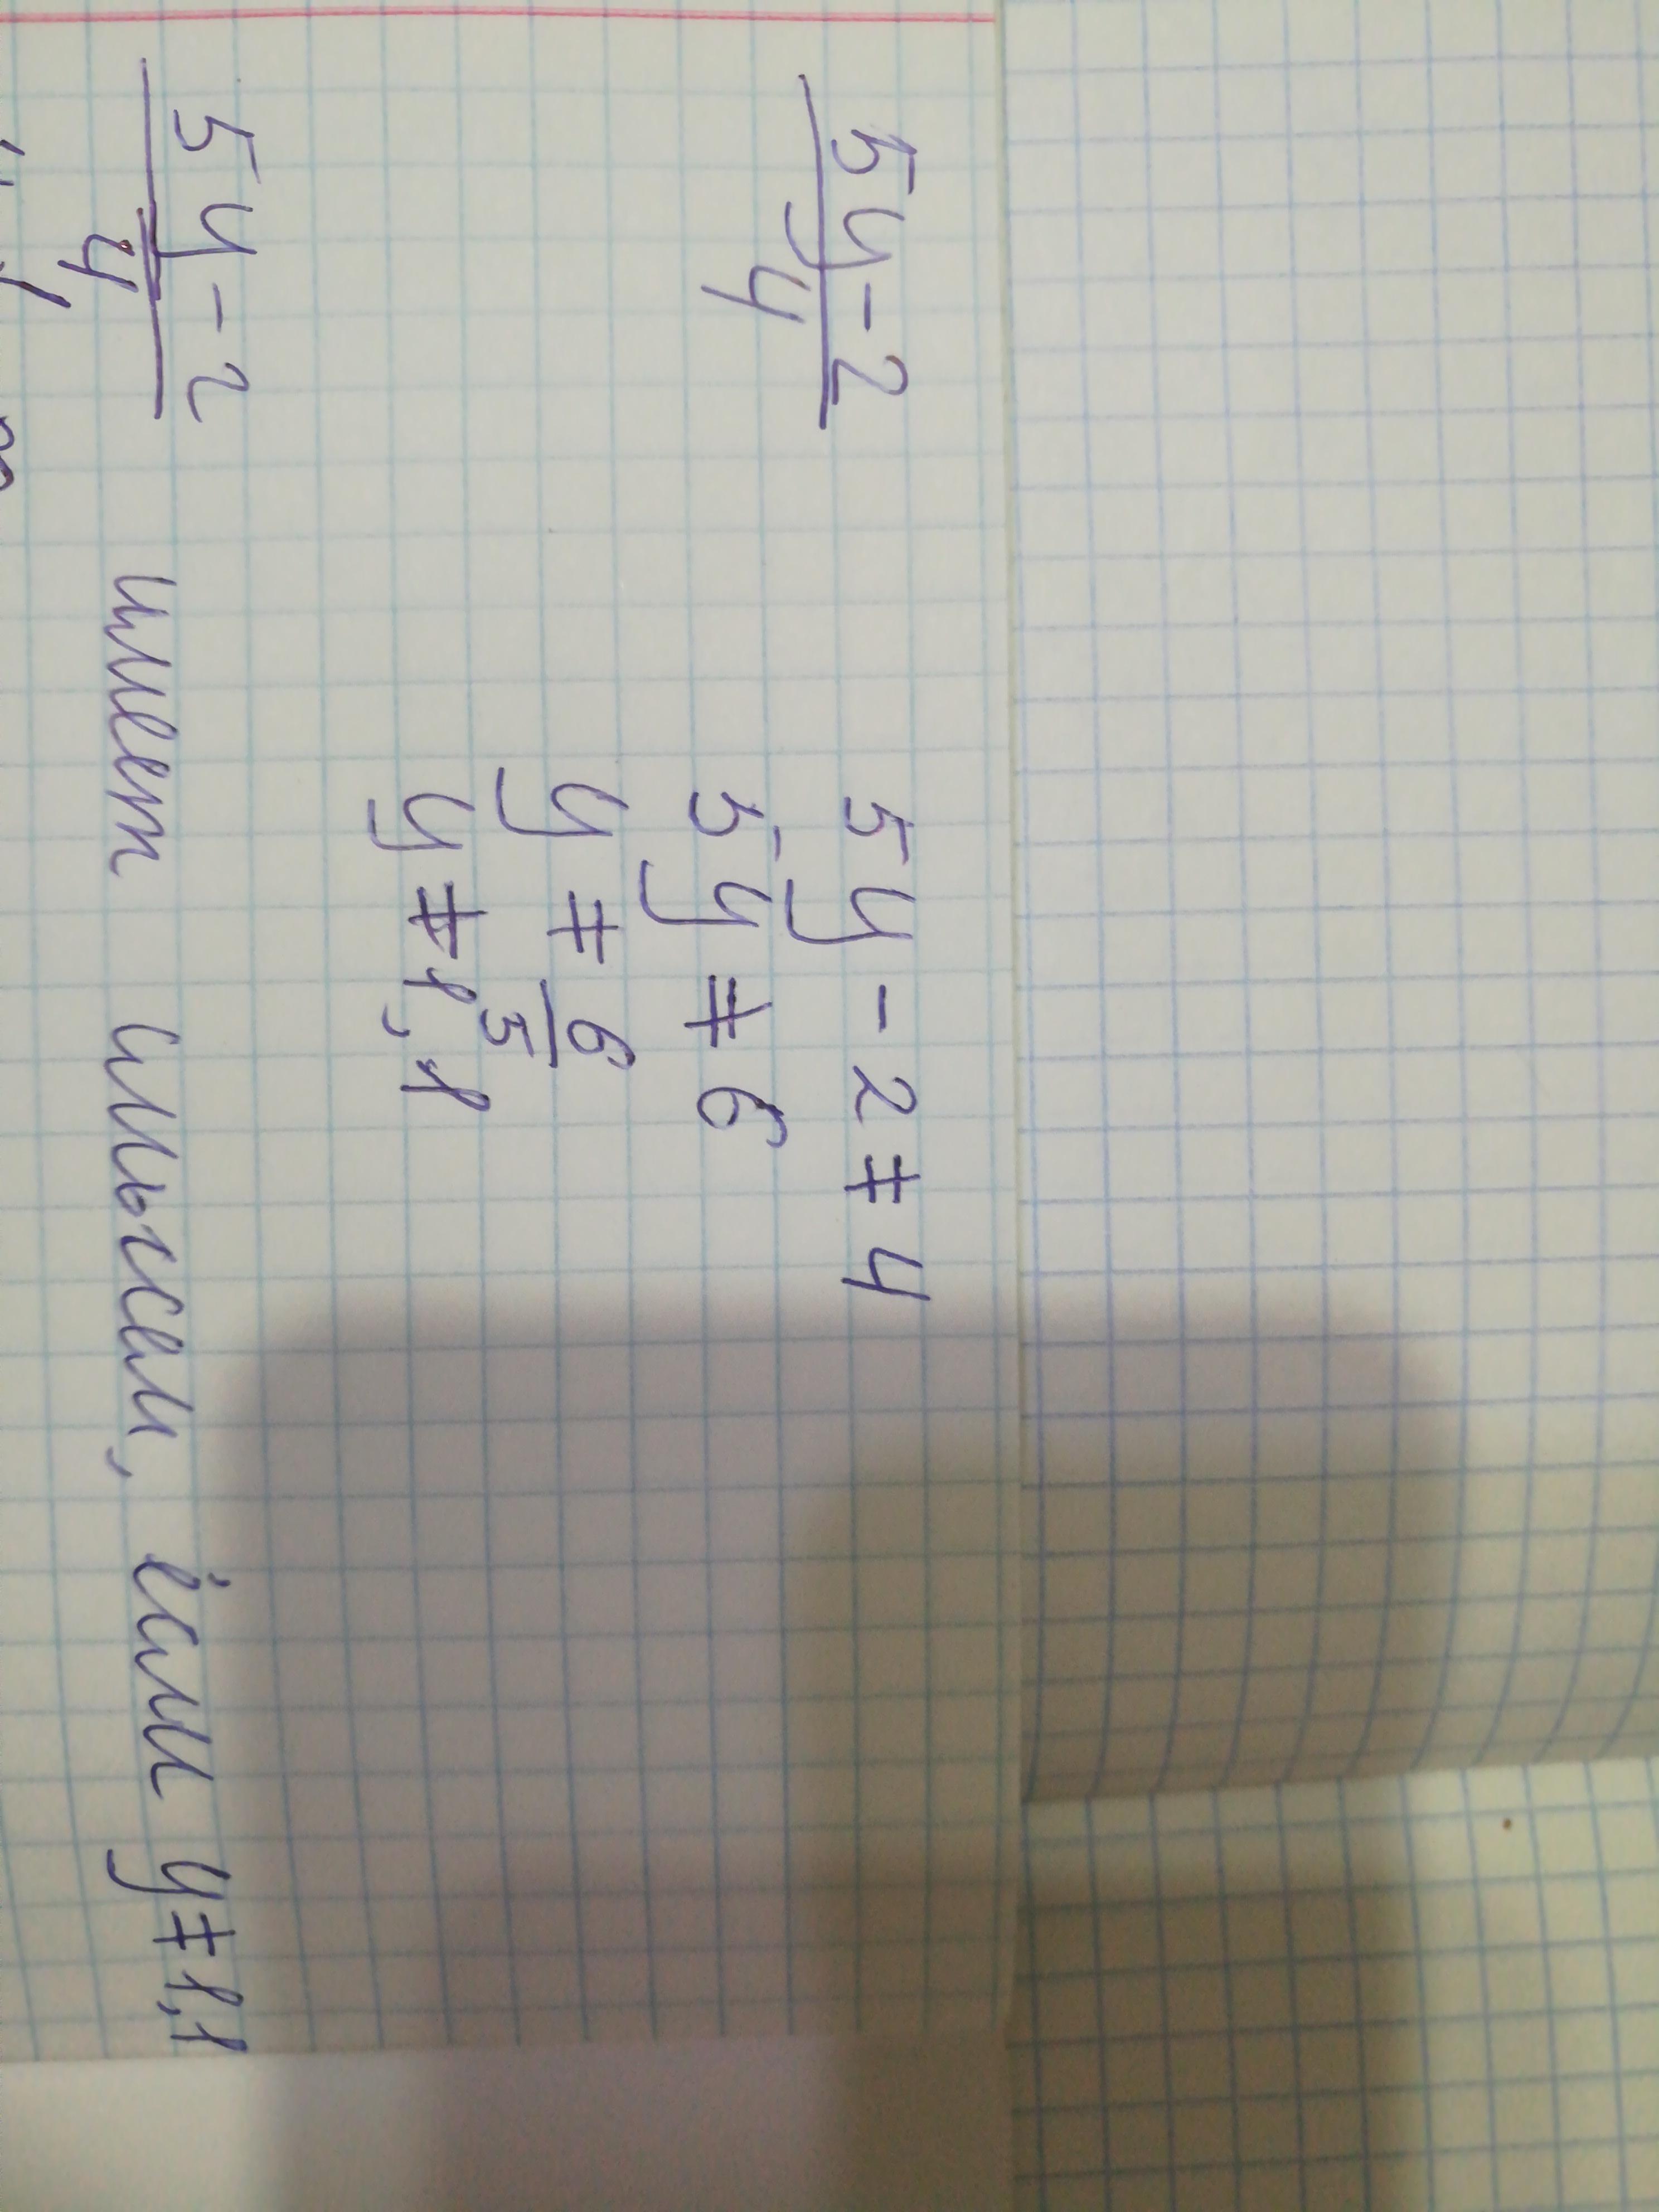 5y-2 5y-2≠4
4 5y≠6
y≠6/5
y≠1,1
5y-2
4 имеет смысл, если y≠1,1